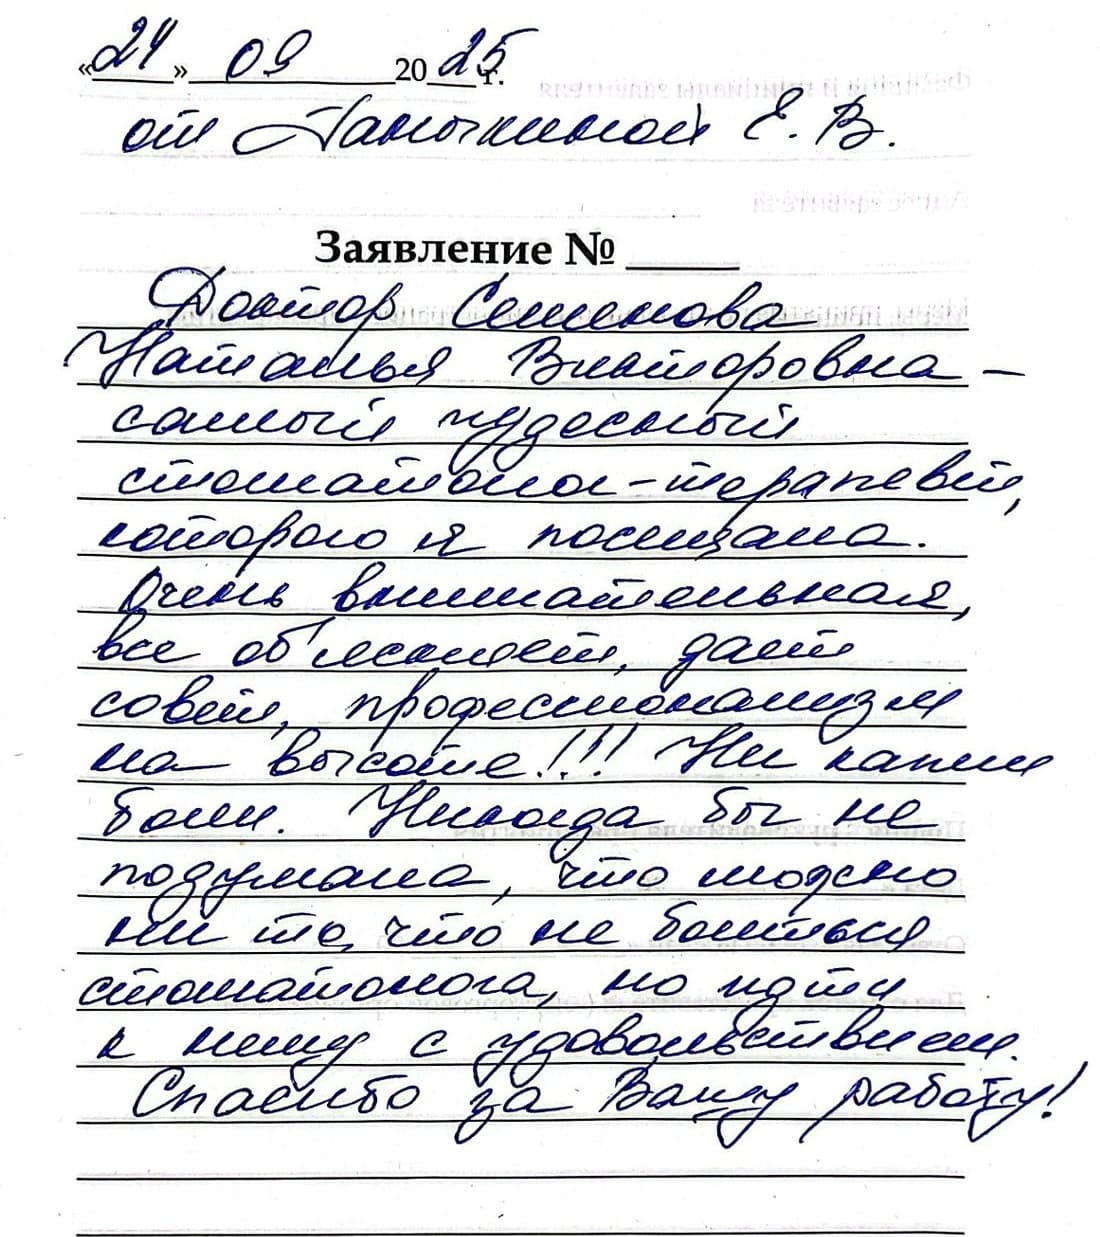 «24» 09 2025 г.
от Паночкиной Е. В.
Заявление № ____
Доктор Семенова
Наталья Викторовна –
самый чудесный
стоматолог-терапевт,
которого я посещала.
Очень внимательная,
все объясняет, дает
совет, профессионализм
на высоте!!! Ни капли
боли. Никогда бы не
подумала, что можно
ни то, что не бояться
стоматолога, но идти
к нему с удовольствием.
Спасибо за Вашу работу!